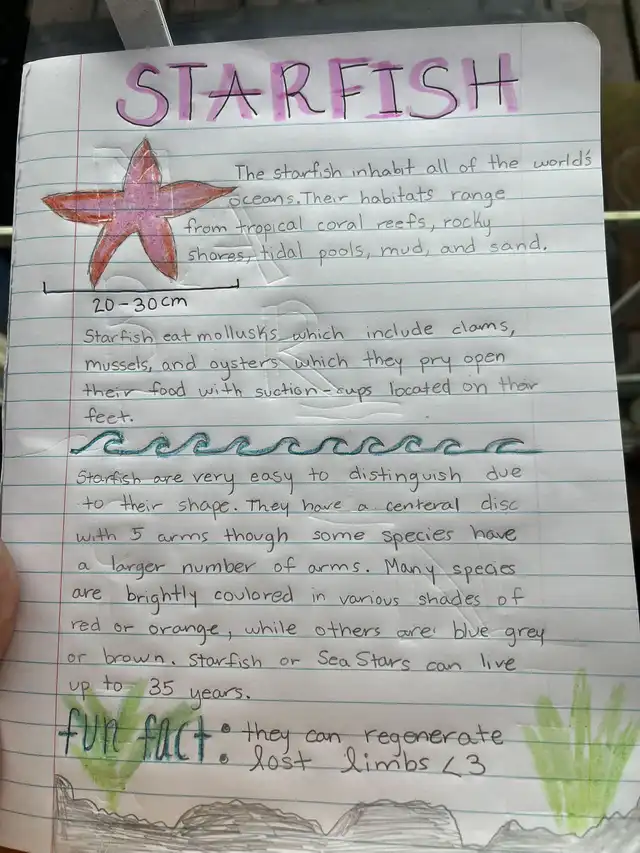 STARFISH
The starfish inhabit all of the world's
oceans. Their habitats range
from tropical coral reefs, rocky
shores, tidal pools, mud, and sand.
20-30cm
Starfish eat mollusks which include clams,
mussels, and oysters which they pry open
their food with suction-cups located on their
feet.
Starfish are very easy to distinguish due
to their shape. They have a centeral disc
with 5 arms though some species have
a larger number of arms. Many species
are brightly coulored in various shades of
red or orange, while others are blue grey
or brown. Starfish or Sea Stars can live
up to 35 years.
fun fact: they can regenerate
lost limbs <3